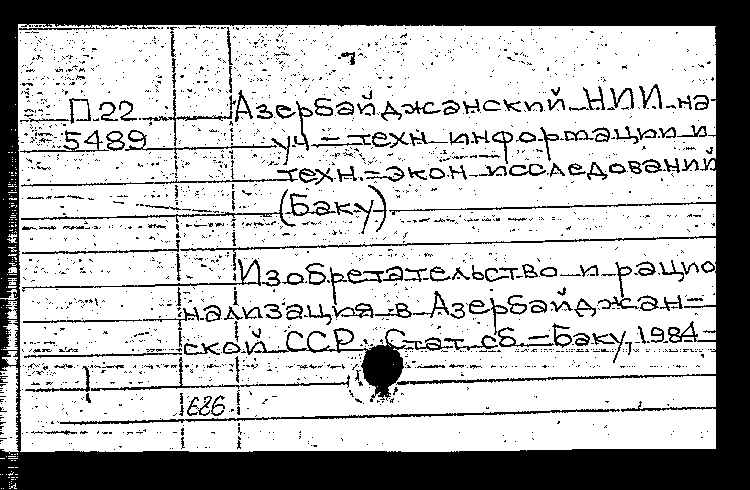 П.22
5489
Азербайджанский НИИ на-
уч.-техн. информации и
техн.-экон. исследований
(Баку).
Изобретательство и рацио
нализация в Азербайджан-
ской ССР: Стат. сб. - Баку, 1984-
686